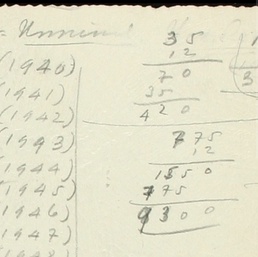 =
35
12
70
35
420
(1940)
(1941)
(1942)
(1943)
(1944)
(1945)
(1946)
(1947)
775
12
1550
775
9300
3